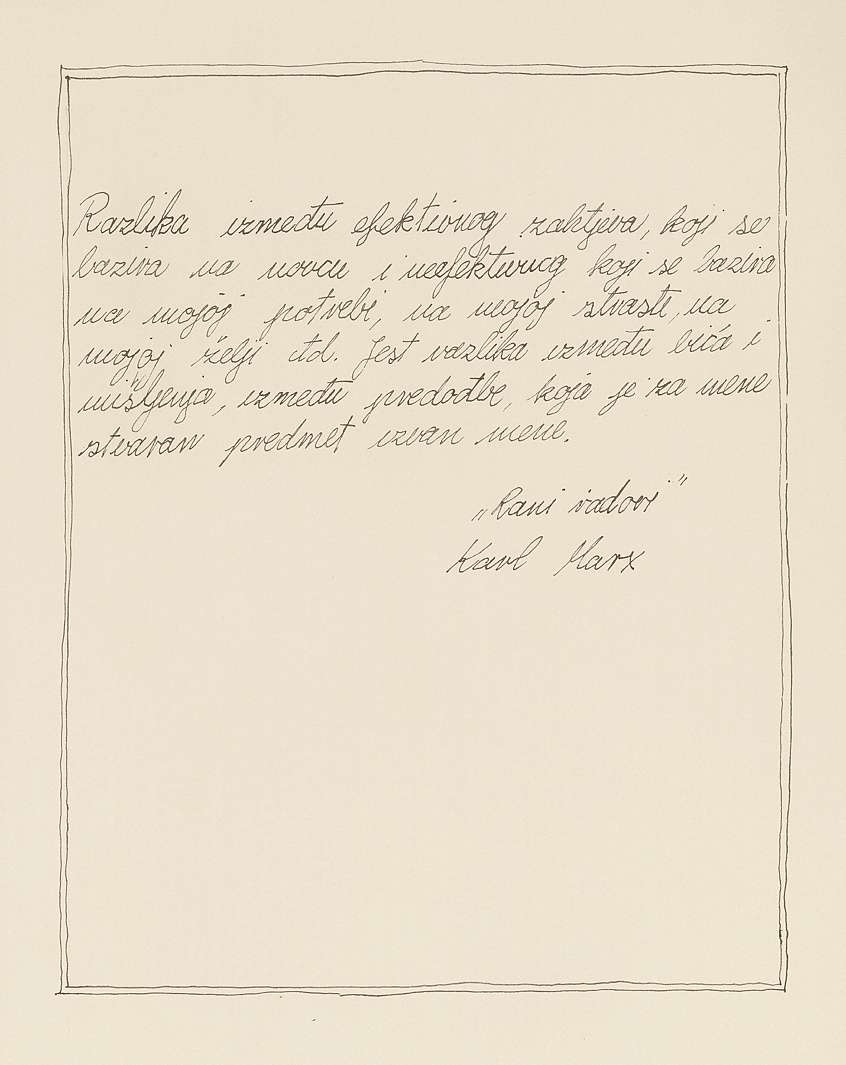 Razlika između efektivnog zahtjeva, koji se
bazira na novcu i neefektivnog koji se bazira
na mojoj potrebi, na mojoj strasti, na
mojoj želji itd. Jest razlika između bića i
mišljenja, između predodžbe, koja je za mene
stvaran predmet izvan mene.
„Rani radovi"
Karl Marx